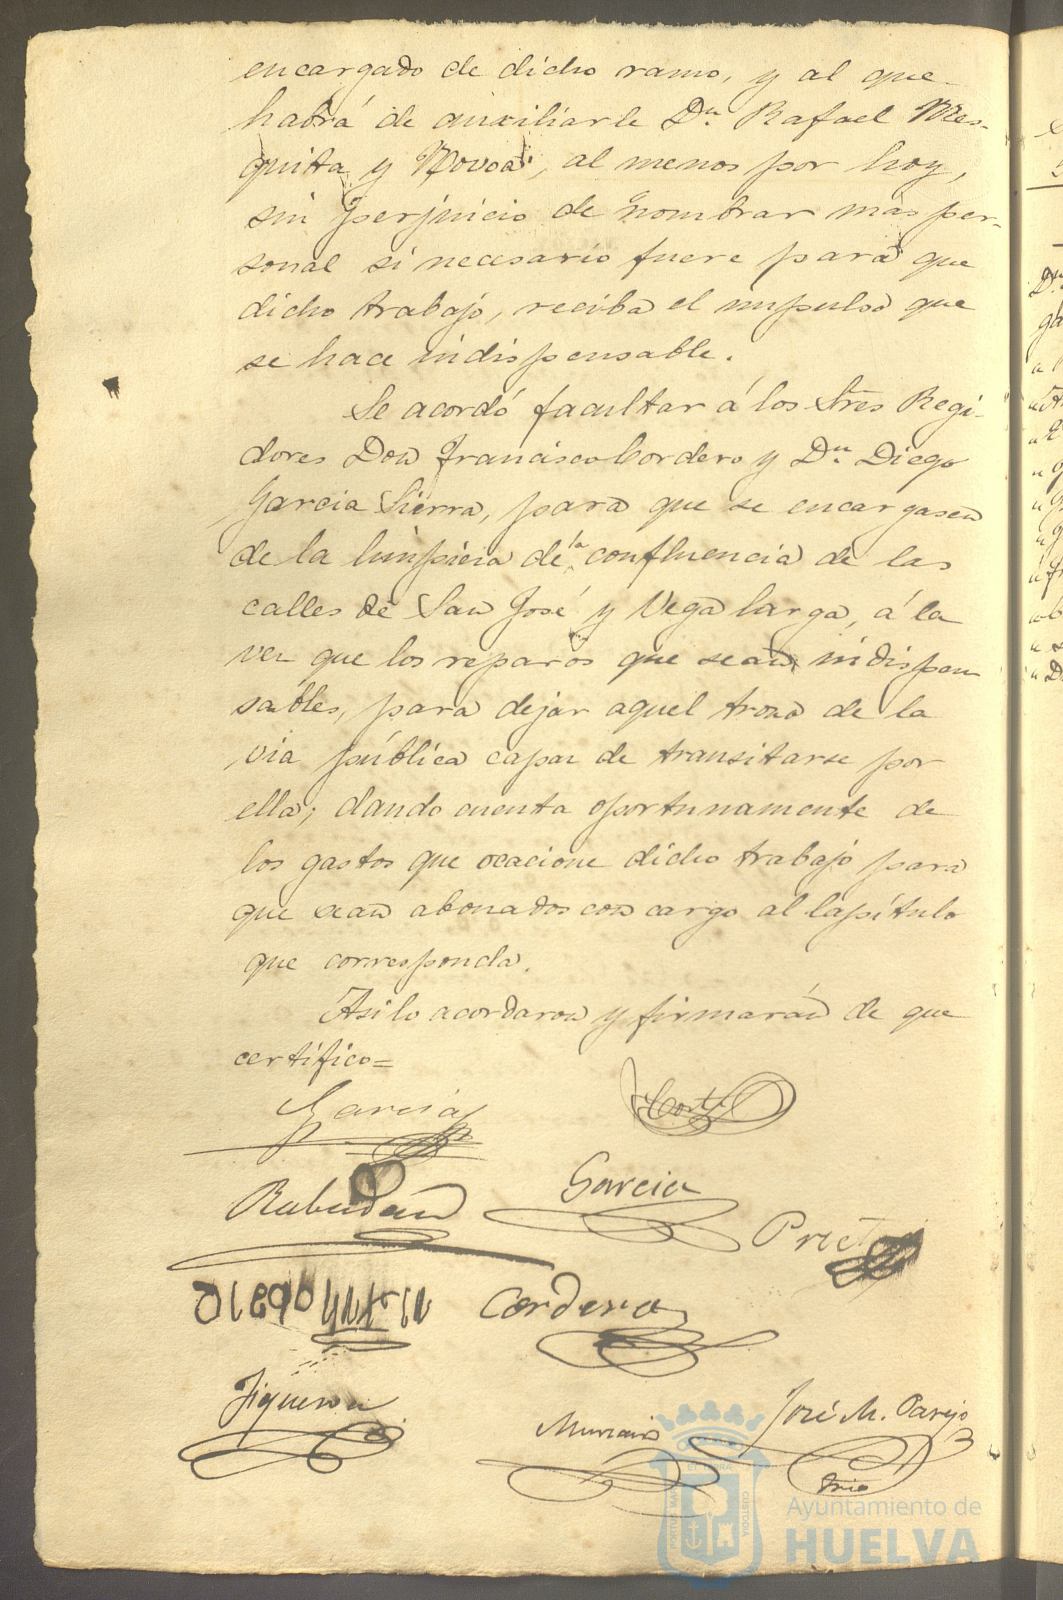 encargado de dicho ramo, y al que
habrá de auxiliarle Dn. Rafael Mes-
quita y Novoa, al menos por hoy,
sin perjuicio de nombrar mas per-
sonal si necesario fuere para que
dicho trabajo, reciba el impulso que
se hace indispensable.
Se acordó facultar á los Sres Regi-
dores Don Francisco Cordero y Dn. Diego
Garcia Sierra, para que se encargasen
de la limpieza de la confluencia de las
calles de San José y Vega larga, á la
vez que los reparos que sean indispen
sables, para dejar aquel trozo de la
via pública capaz de transitarse por
ella; dando cuenta oportunamente de
los gastos que ocacione dicho trabajo para
que sean abonados con cargo al Capítulo
que corresponda.
Asi lo acordaron y firmarán de que
certifico=
Garcia
Rabadan
Garcia
Prieto
Cordero
Figueroa
José M. Parejo
Srio
PORTUS MARIS
ET TERRA
CUSTODIA
Ayuntamiento de
HUELVA